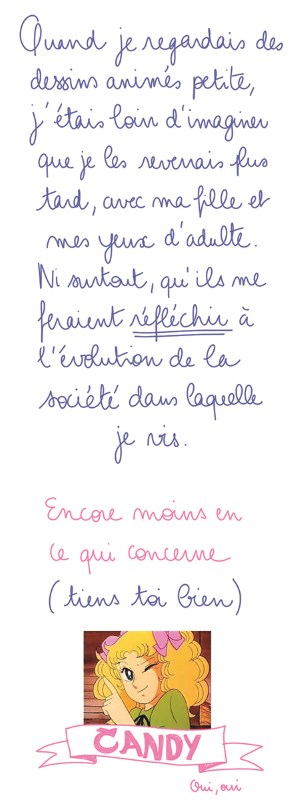 Quand je regardais des
dessins animés petite,
j'étais loin d'imaginer
que je les reverrais plus
tard, avec ma fille et
mes yeux d'adulte.
Ni surtout, qu'ils me
feraient réfléchir à
l'évolution de la
société dans laquelle
je vis.
Encore moins en
ce qui concerne
(tiens toi bien)
CANDY
Oui, oui